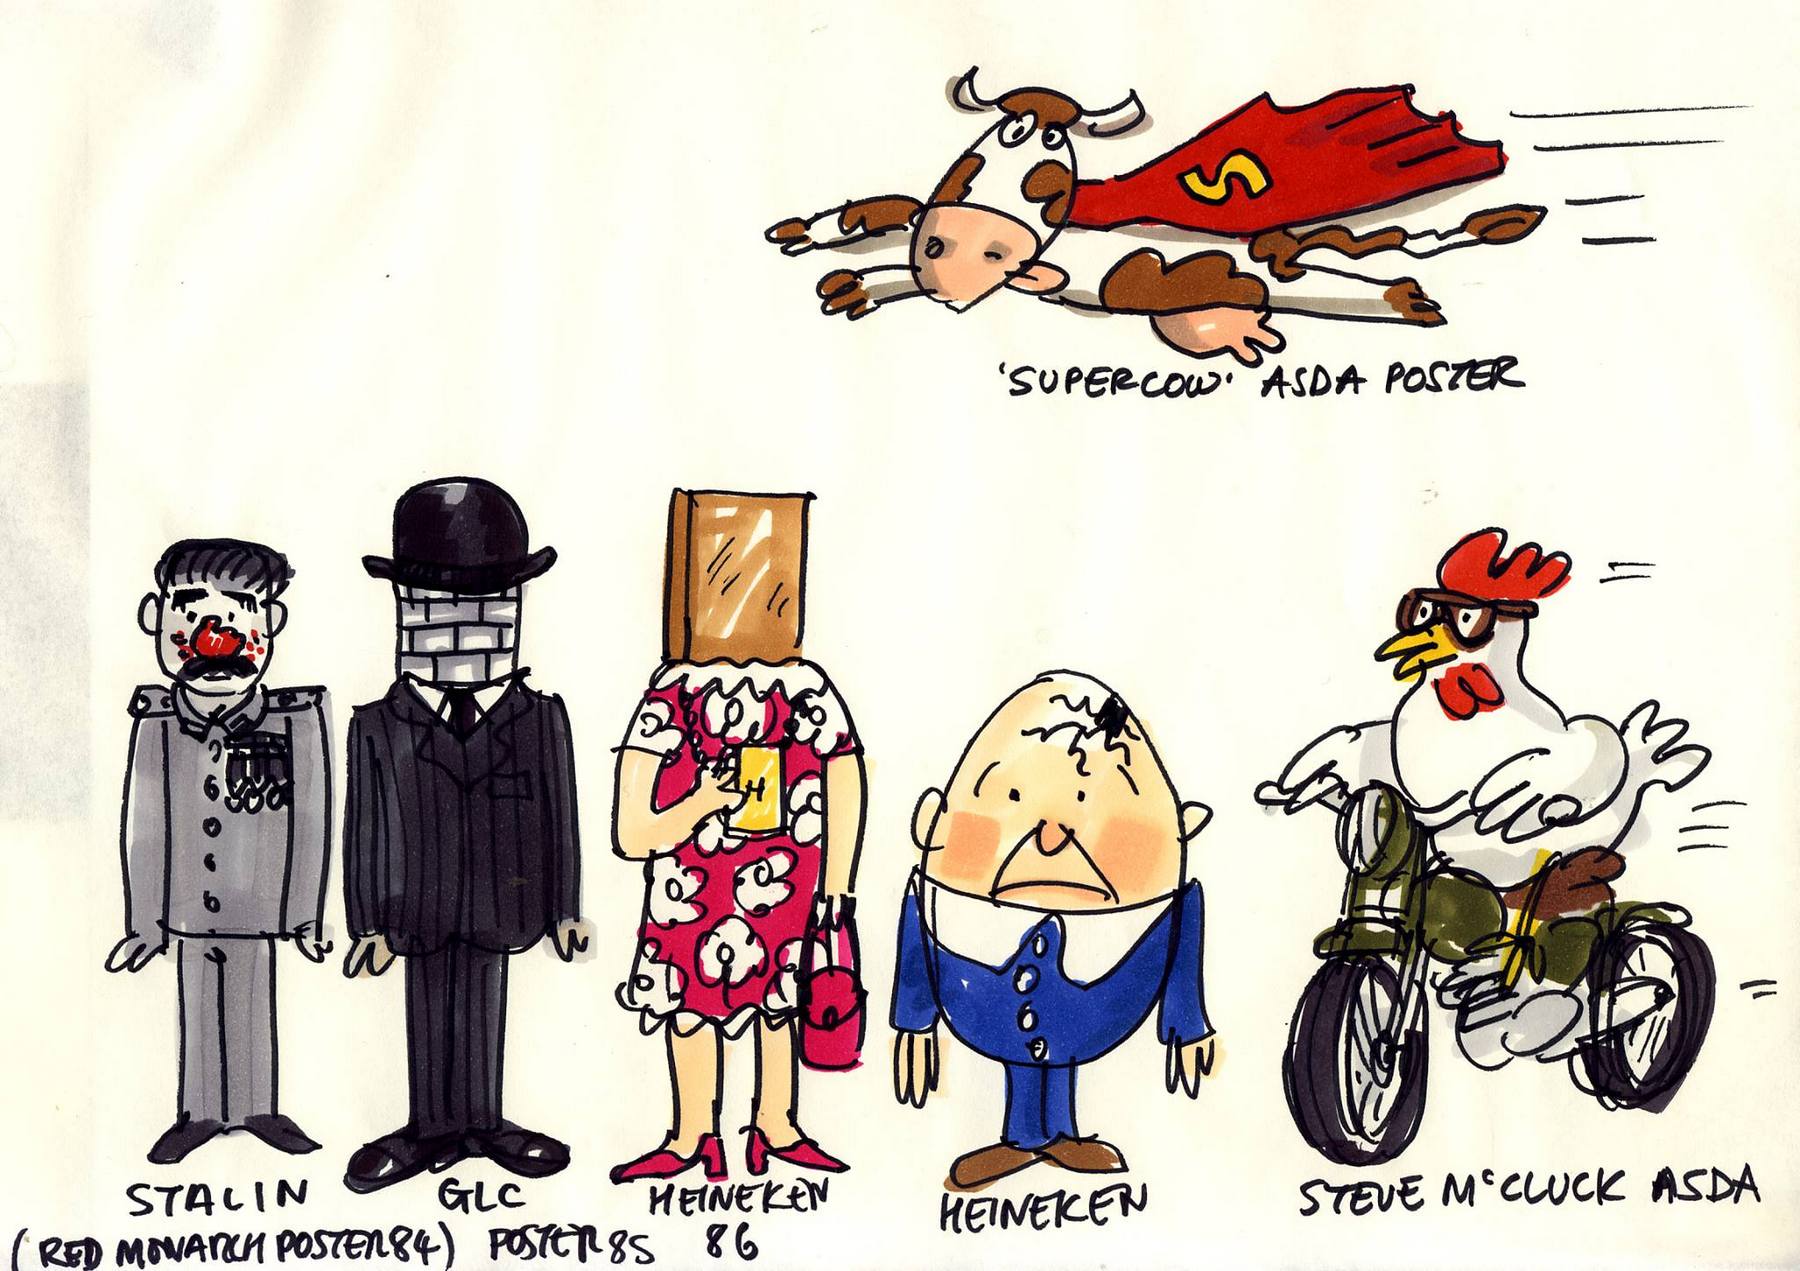 S
'SUPERCOW' ASDA POSTER
H
STALIN
(RED MONARCH POSTER 84)
GLC
POSTER 85
HEINEKEN
86
HEINEKEN
STEVE McCLUCK ASDA